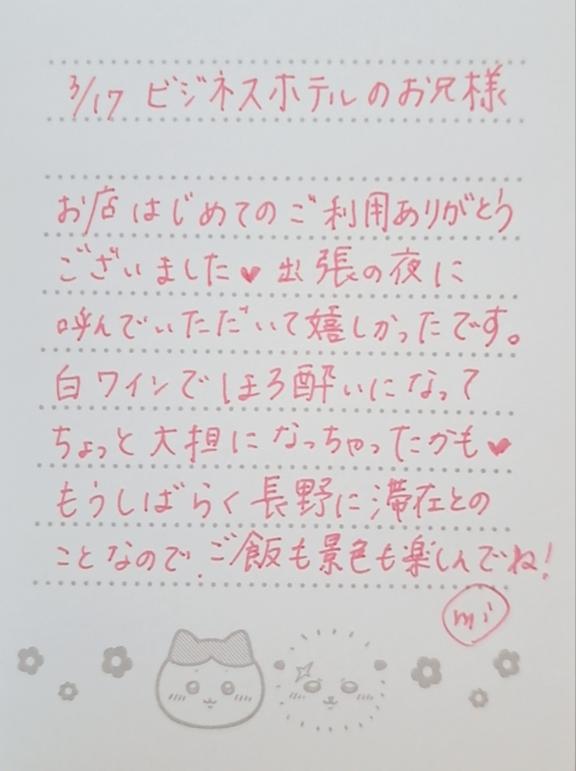 3/17 ビジネスホテルのお兄様
お店はじめてのご利用ありがとう
ございました♥ 出張の夜に
呼んでいただいて嬉しかったです。
白ワインでほろ酔いになって
ちょっと大担になっちゃったかも♥
もうしばらく長野に滞在との
ことなので、ご飯も景色も楽しんでね!
mi